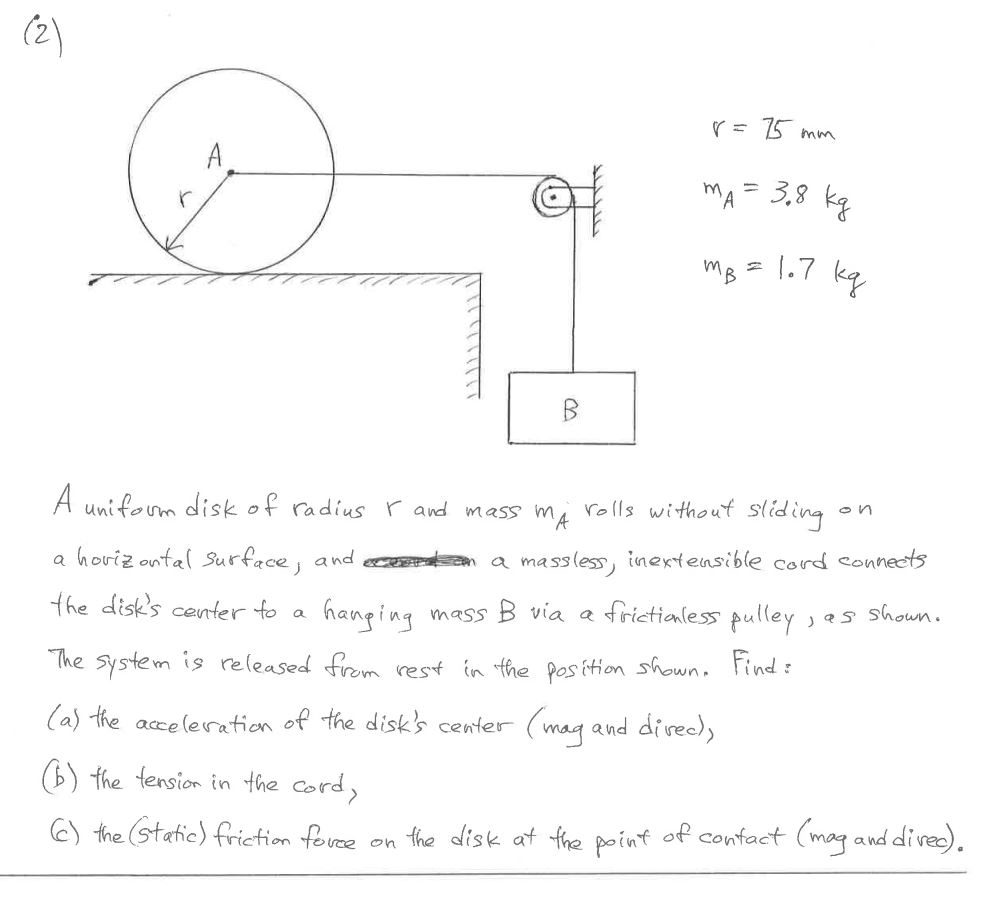 (2)
A
r
B
r = 75 mm
mA = 3.8 kg
mB = 1.7 kg
A uniform disk of radius r and mass mA rolls without sliding on
a horizontal surface, and a massless, inextensible cord connects
the disk's center to a hanging mass B via a frictionless pulley, as shown.
The system is released from rest in the position shown. Find:
(a) the acceleration of the disk's center (mag and direc),
(b) the tension in the cord,
(c) the (static) friction force on the disk at the point of contact (mag and direc).